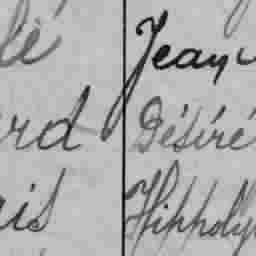 lé Jean
rd Désiré
is Hippoly